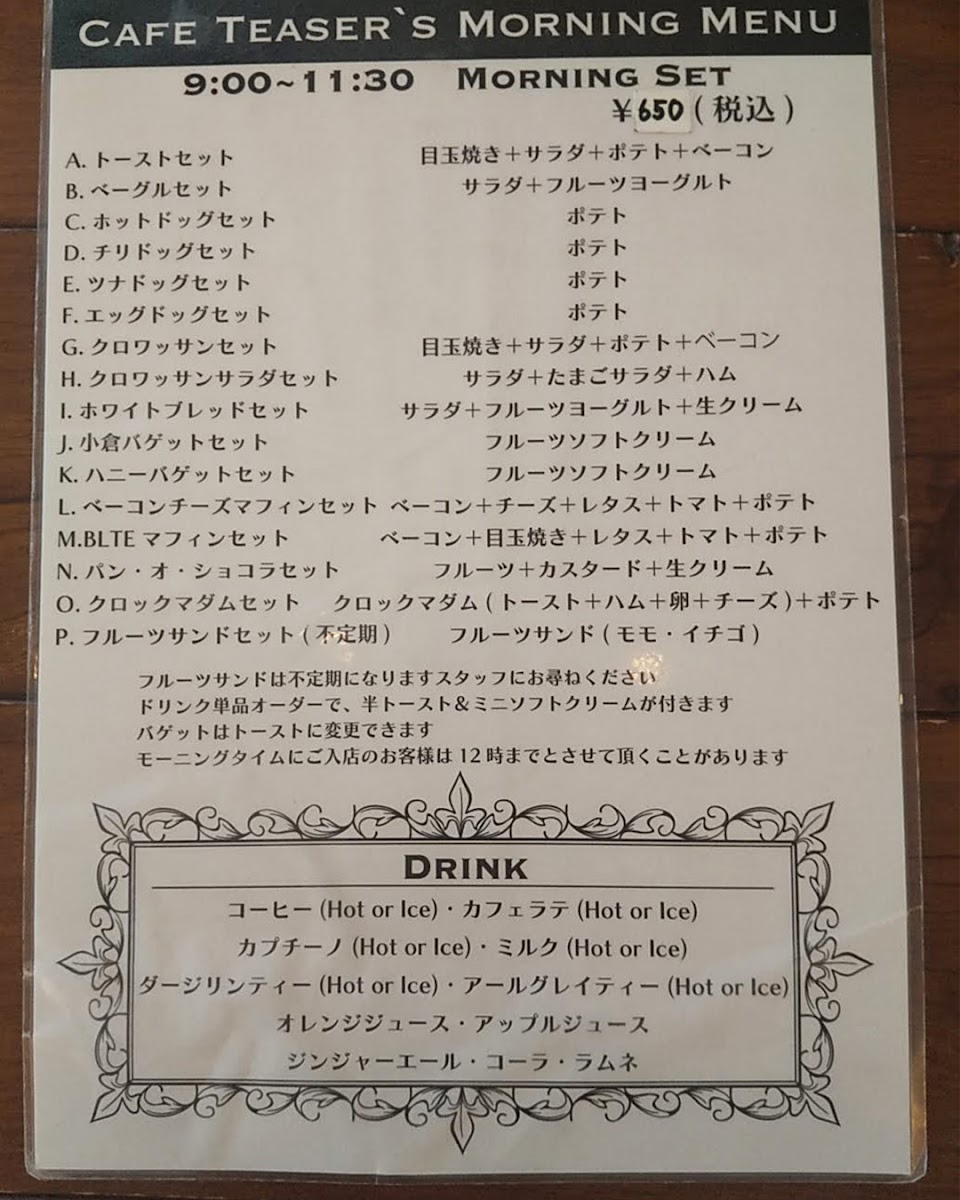 CAFE TEASER`S MORNING MENU
9:00~11:30 MORNING SET
¥650(税込)
A. トーストセット 目玉焼き+サラダ+ポテト+ベーコン
B. ベーグルセット サラダ+フルーツヨーグルト
C. ホットドッグセット ポテト
D. チリドッグセット ポテト
E. ツナドッグセット ポテト
F. エッグドッグセット ポテト
G. クロワッサンセット 目玉焼き+サラダ+ポテト+ベーコン
H. クロワッサンサラダセット サラダ+たまごサラダ+ハム
I. ホワイトブレッドセット サラダ+フルーツヨーグルト+生クリーム
J. 小倉バゲットセット フルーツソフトクリーム
K. ハニーバゲットセット フルーツソフトクリーム
L. ベーコンチーズマフィンセット ベーコン+チーズ+レタス+トマト+ポテト
M.BLTE マフィンセット ベーコン+目玉焼き+レタス+トマト+ポテト
N. パン・オ・ショコラセット フルーツ+カスタード+生クリーム
O. クロックマダムセット クロックマダム(トースト+ハム+卵+チーズ)+ポテト
P. フルーツサンドセット(不定期) フルーツサンド(モモ・イチゴ)
フルーツサンドは不定期になりますスタッフにお尋ねください
ドリンク単品オーダーで、半トースト&ミニソフトクリームが付きます
バゲットはトーストに変更できます
モーニングタイムにご入店のお客様は12時までとさせて頂くことがあります
DRINK
コーヒー(Hot or Ice)・カフェラテ(Hot or Ice)
カプチーノ(Hot or Ice)・ミルク(Hot or Ice)
ダージリンティー(Hot or Ice)・アールグレイティー(Hot or Ice)
オレンジジュース・アップルジュース
ジンジャーエール・コーラ・ラムネ